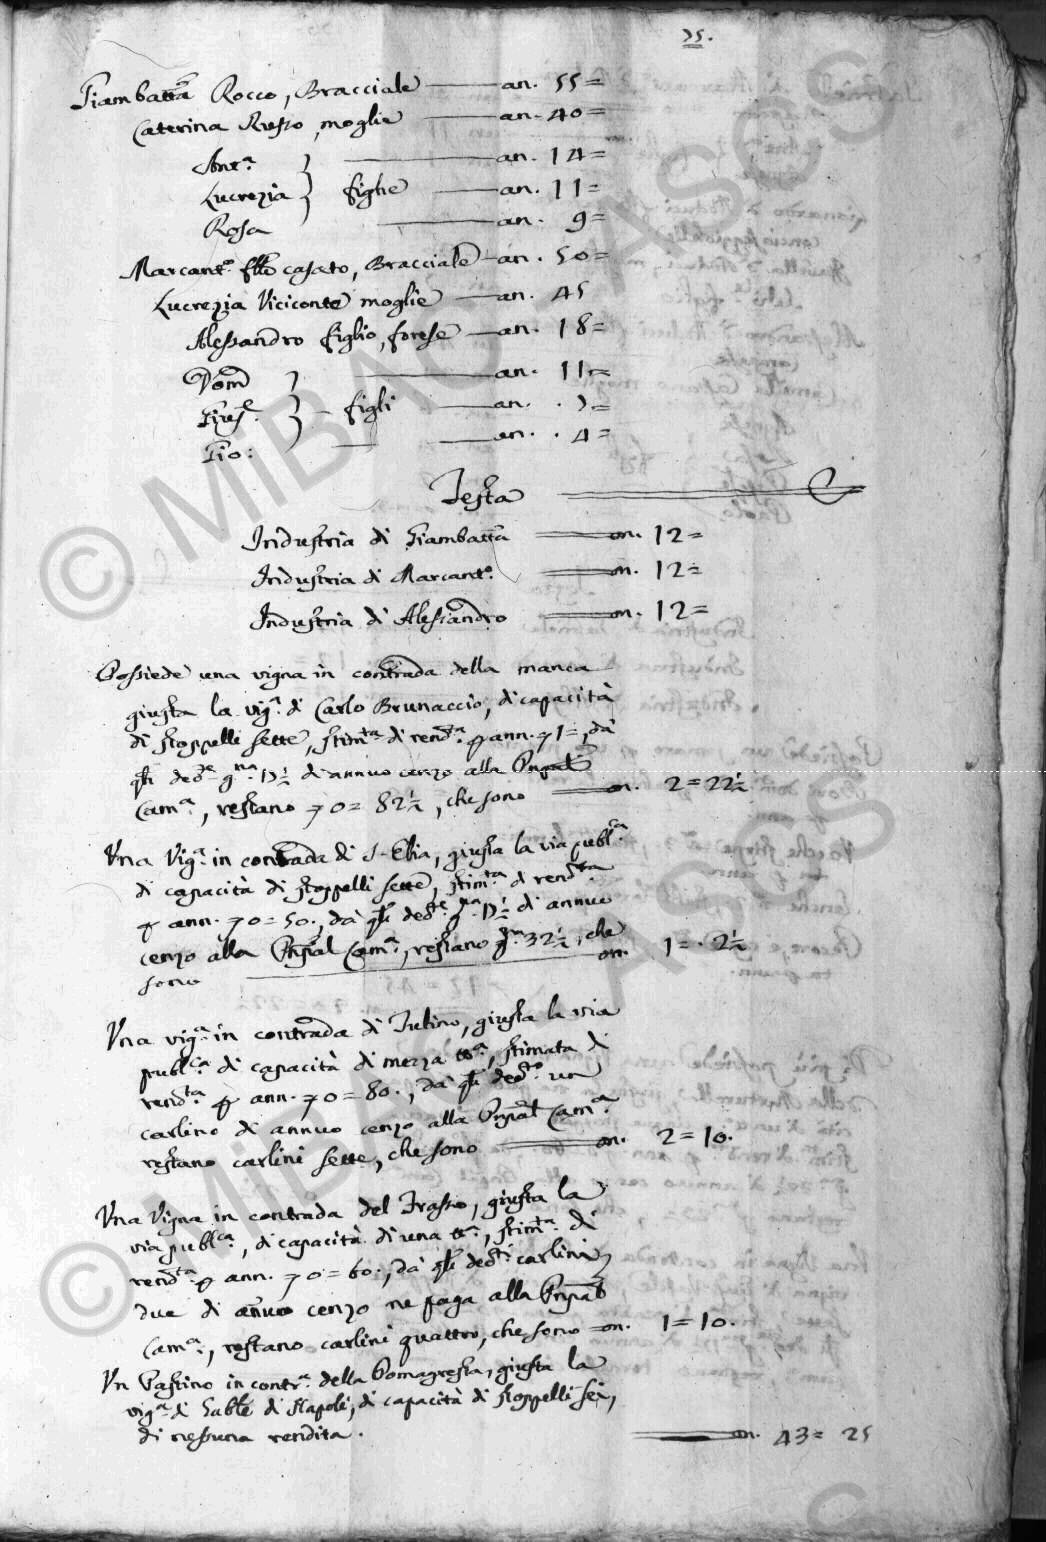 75.
Giambatta Rocco, Bracciale an. 55=
Caterina Russo, moglie an. 40=
Ant.a an. 14=
Lucrezia figlie an. 11=
Rosa an. 9=
Marcant.o casato, Bracciale an. 50=
Lucrezia Viciconte moglie an. 45
Alessandro figlio, forese an. 18=
Dom.co an. 11=
figli an. . 7=
Gio: an. . 4=
Testa
Industria di Giambatta on. 12=
Industria di Marcant.o on. 12=
Industria di Alessandro on. 12=
Possiede una vigna in contrada della manca
giusta la vig.a di Carlo Brunaccio, di capacità
di stoppelli sette, stim.ta di rend.ta p ann. 1=, da
di annuo cenzo alla
Cam.a, restano 0=82½, che sono on. 2=22½
Una Vig.a in contrada di S. Elia, giusta la via publ.ca
di capacità di stoppelli sette, stim.ta di rend.ta
p ann. 0=50., da di annuo
cenzo alla Cam.a, restano 32½, che
sono on. 1=. 2½
Una vig.a in contrada di giusta la via
publ.ca di capacità di mezza tt.a, stimata di
rend.ta p ann. 0=80., da un
carlino di annuo cenzo alla Cam.a
restano carlini sette, che sono on. 2=10.
Una Vigna in contrada del Frasso, giusta la
via publ.ca, di capacità di una tt.a, stim.ta di
rend.ta p ann. 0=60., da carlini
due di annuo cenzo ne paga alla
Cam.a, restano carlini quattro, che sono on. 1=10.
Un Pastino in contr.a della Pomagresta, giusta la
vig.a di di Napoli, di capacità di stoppelli sei,
di nessuna rendita. on. 43=25
© MiBAC ASCS
© MiBAC ASCS